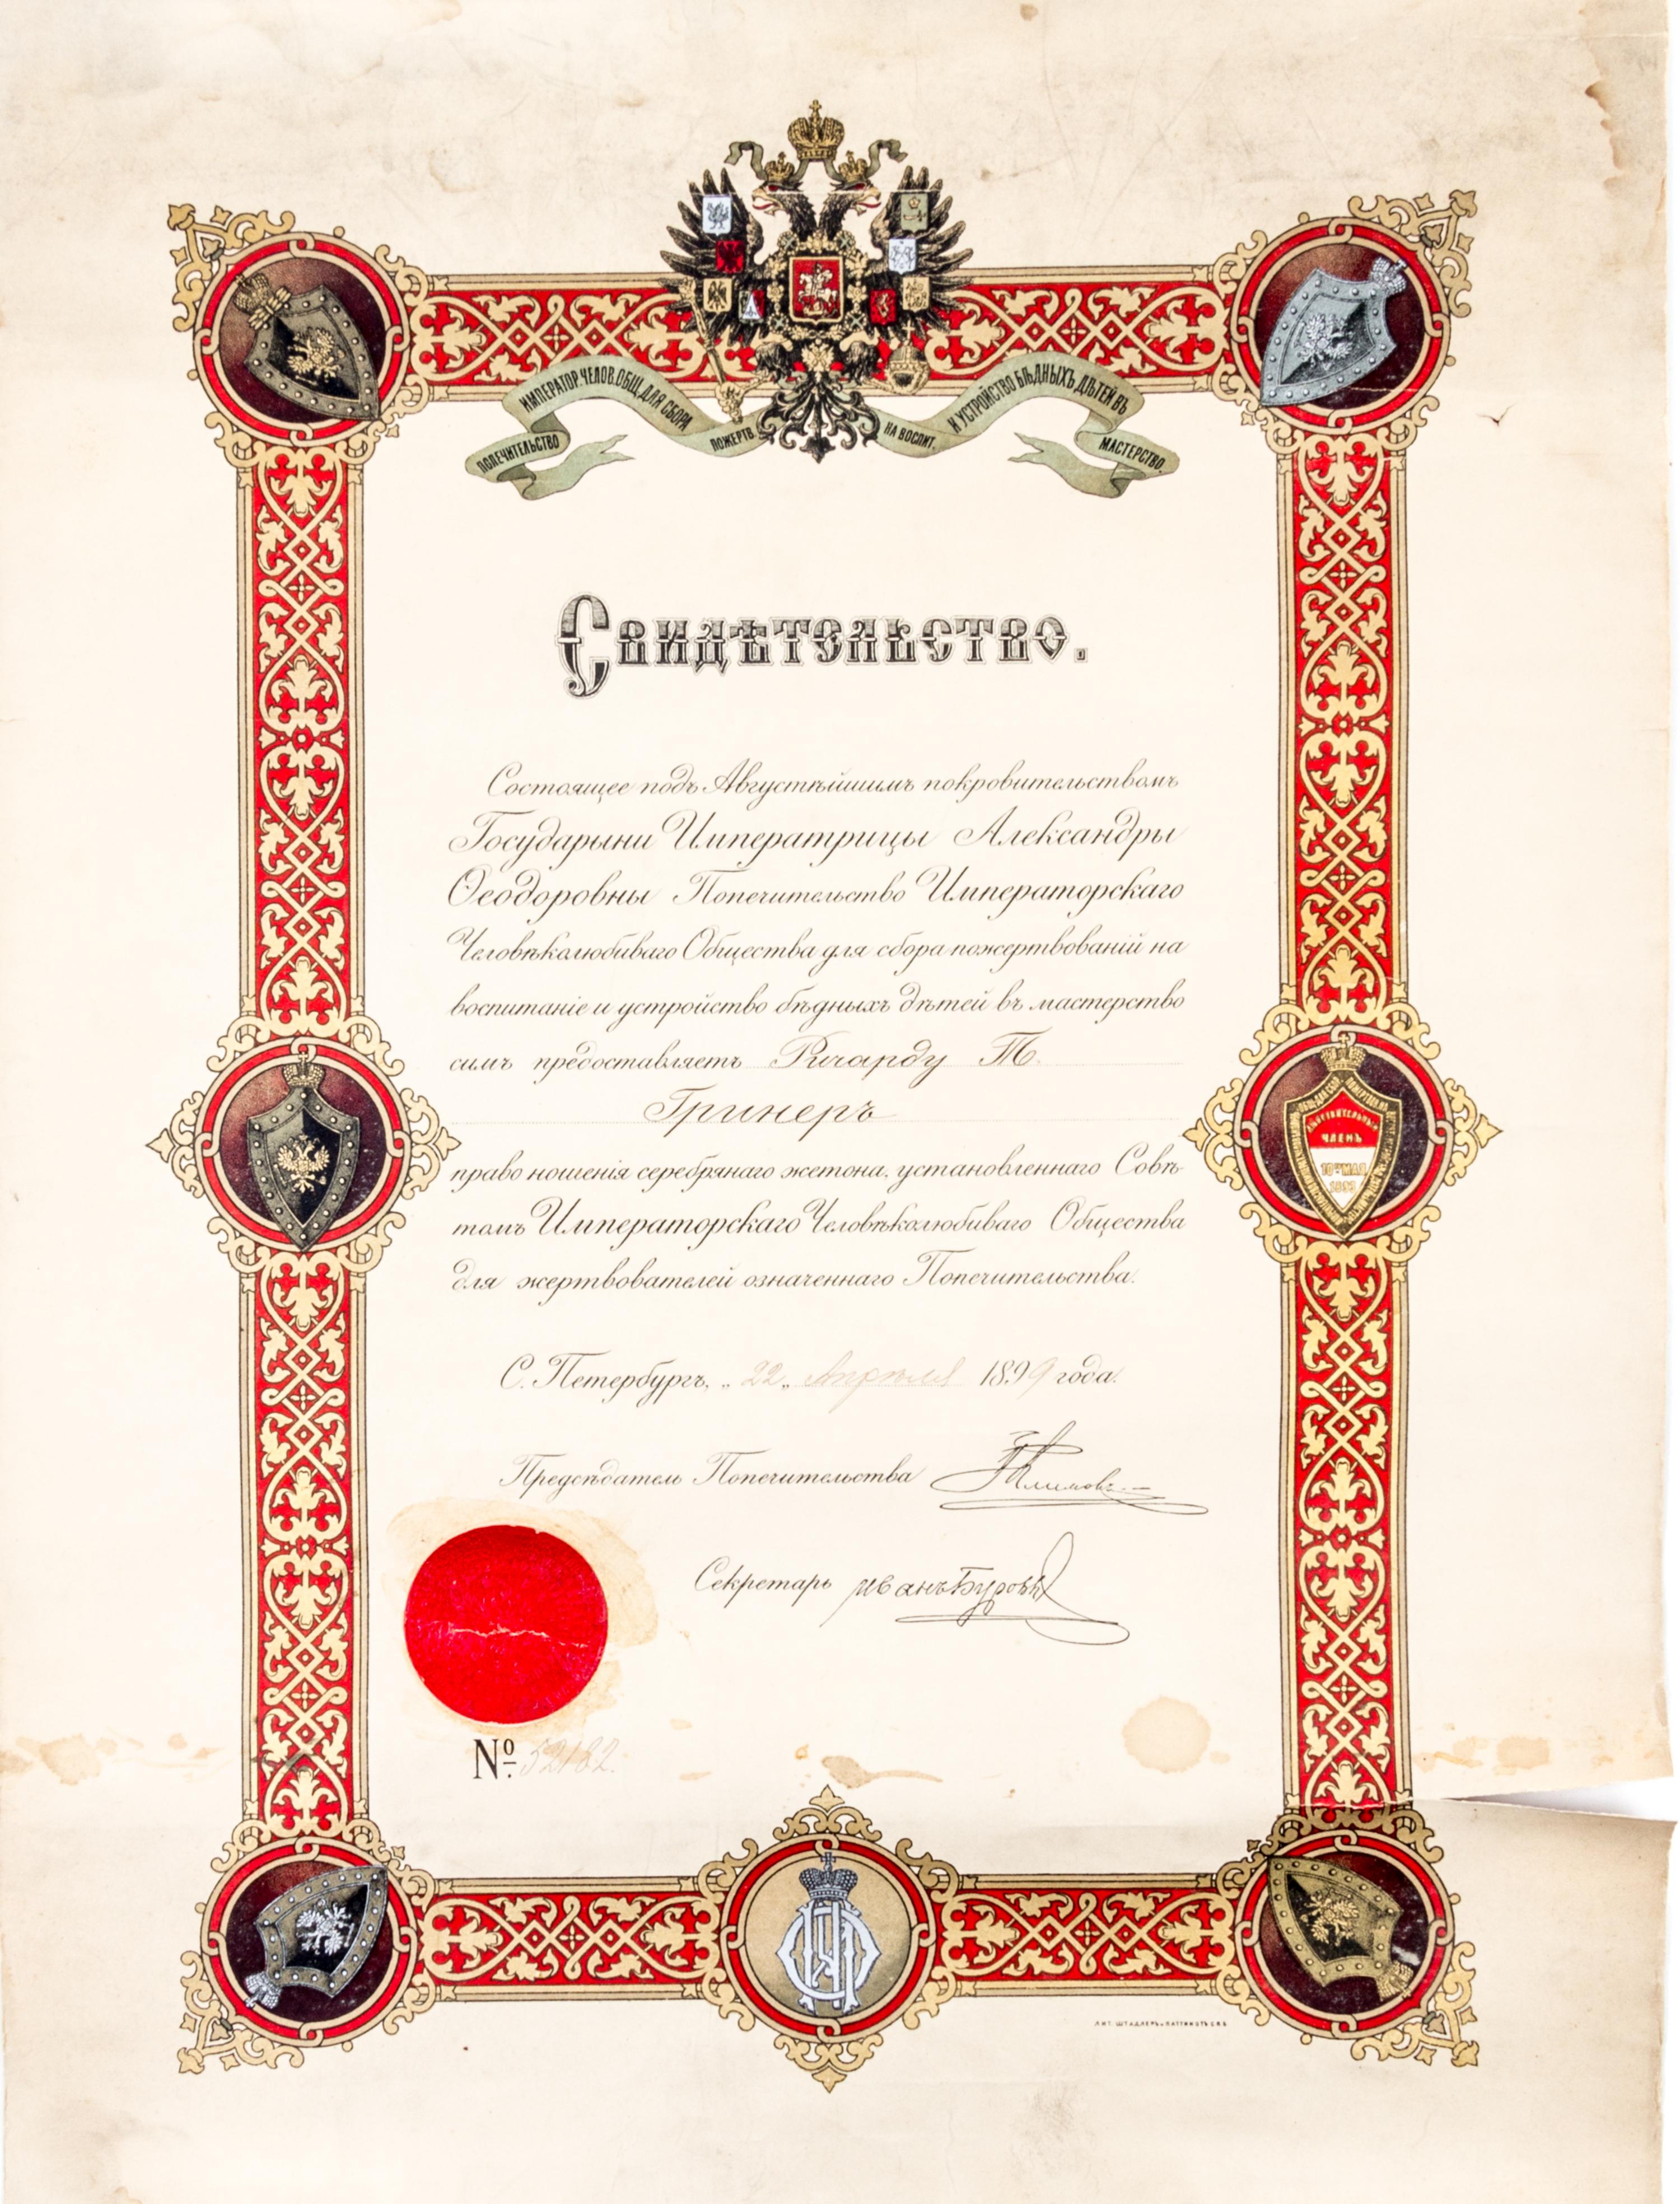 ПОПЕЧИТЕЛЬСТВО ИМПЕРАТОР. ЧЕЛОВ. ОБЩ. ДЛЯ СБОРА ПОЖЕРТВ. НА ВОСПИТ. И УСТРОЙСТВО БѢДНЫХЪ ДѢТЕЙ ВЪ МАСТЕРСТВО.
Свидѣтельство.
Состоящее подъ Августѣйшимъ покровительствомъ
Государыни Императрицы Александры
Ѳеодоровны Попечительство Императорскаго
Человѣколюбиваго Общества для сбора пожертвованій на
воспитаніе и устройство бѣдныхъ дѣтей въ мастерство
симъ предоставляетъ Ричарду Т.
Гринеръ
право ношенія серебрянаго жетона, установленнаго Совѣ-
томъ Императорскаго Человѣколюбиваго Общества
для жертвователей означеннаго Попечительства.
ДѢЙСТВИТЕЛЬНЫЙ
ЧЛЕНЪ
10го МАЯ
1893
С. Петербургъ, „22„ Апрѣля 1899 года.
Предсѣдатель Попечительства
Секретарь Иванъ Буровъ
№ 52182.
ЛИТ. ШТАДЛЕРЪ и ПАТТИНОТЪ С.П.Б.